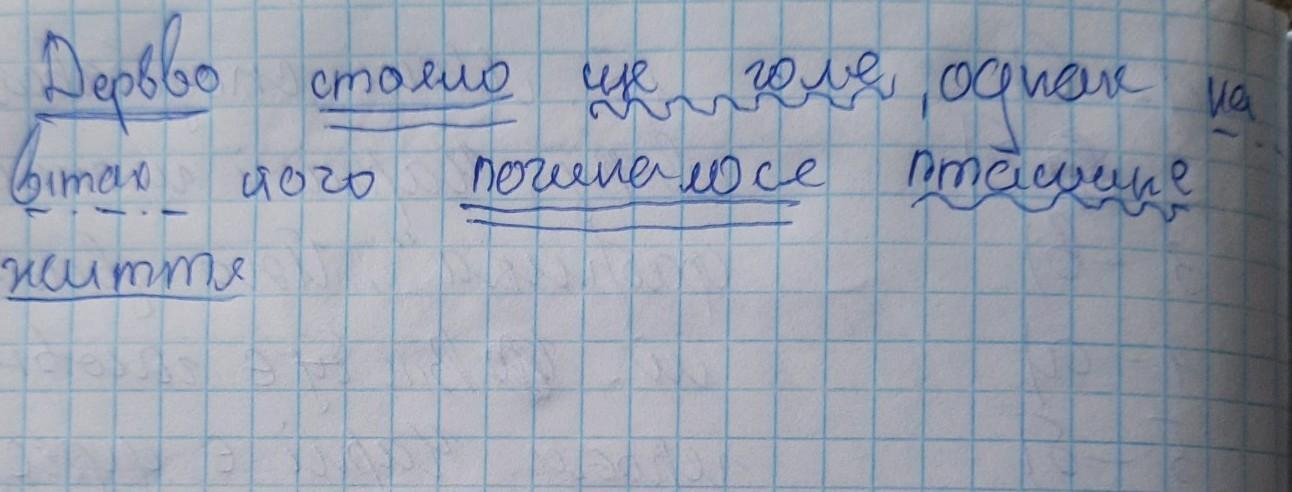 Дерево стояло ще голе, однак на
вітах його починалося пташине
життя